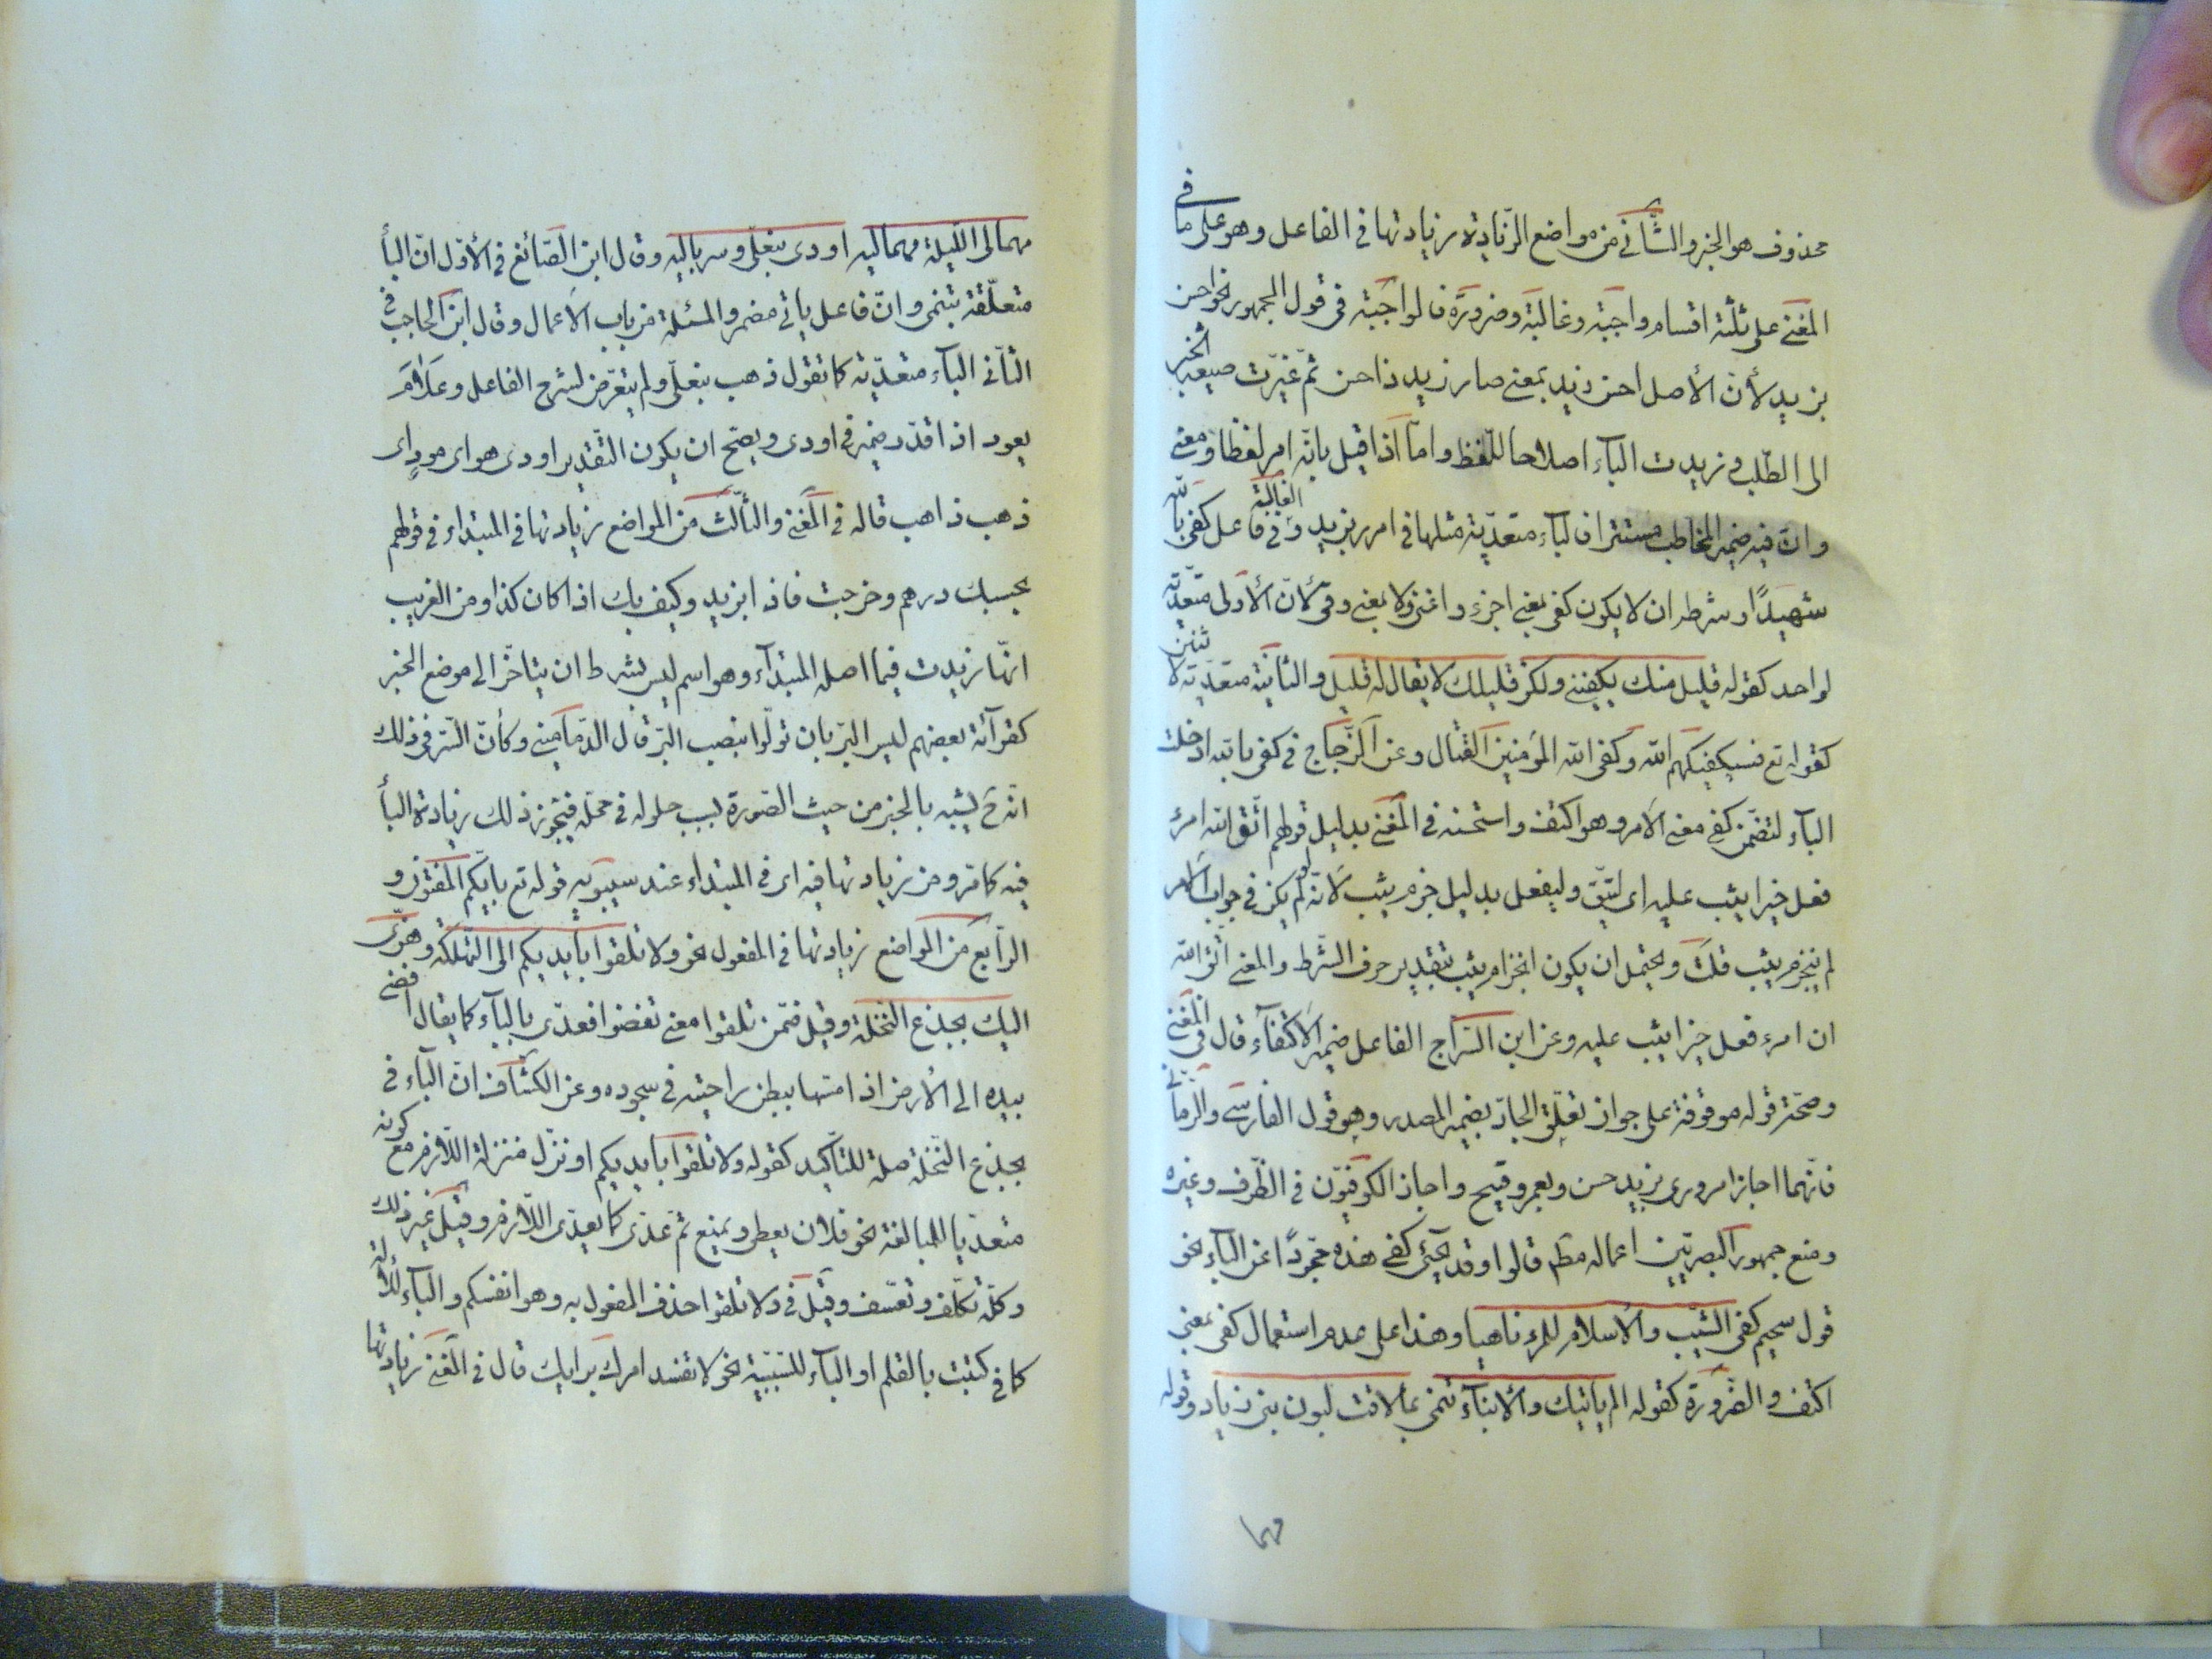 محذوف هو الخبر والثّاني من مواضع الزّيادة زيادتها في الفاعل وهو على ما في
المغني على ثلثة اقسام واجبة وغالبة وضرورة فالواجبة في قول الجمهور نحو احسن
بزيد لأنّ الأصل احسن زيد بمعنى صار زيد ذا حسن ثمّ غيّرت صيغة الخبر
الى الطّلب وزيدت البآء اصلاحا للّفظ وامّا اذا قيل بانّه امر لفظا ومعنى
وانّ فيه ضمير المخاطب مستترا فالبآء متعدّية مثلها في امرر بزيد والغالبة في فاعل كفى بالله
شهيدًا وشرطه ان لا يكون كفى بمعنى اجزء واغنى ولا بمعنى وقى لأنّ الأولى متعدّية
لواحد كقوله قليل منك يكفيني ولكن قليلك لا يقال له قليل والثّانية متعدّية لاثنين
كقوله تع فسيكفيكهم الله وكفى الله المؤمنين القتال وعن الزّجاج في كفى بالله ادخلت
البآء لتضمّن كفى معنى الأمر وهو اكتف واستحسنه في المغني بدليل قولهم اتّق الله امرء
فعل خيرا يثب عليه اى ليتّق وليفعل بدليل جزم يثب لأنّه لو لم يكن في جواب الأمر
لم ينجزم يثب قلت ويحتمل ان يكون انجزام يثب بتقدير حرف الشّرط والمعنى اتّق الله
ان امرء فعل خيرا يثب عليه وعن ابن السّراج الفاعل ضمير الاكتفآء قال في المغني
وصحّة قوله موقوفة على جواز تعلّق الجارّ بضمير المصدر وهو قول الفارسي والرّمّاني
فانّهما اجازا مرورى بزيد حسن وبعمرو قبيح واجاز الكوفيّون في الظّرف وغيره
ومنع جمهور البصريّين اعماله مطّ قالوا وقد يجئ كفى هذه مجرّدًا عن البآء نحو
قول سحيم كفى الشّيب والأسلام للمرء ناهيا وهذا على عدم استعمال كفى بمعنى
اكتف والضّرورة كقوله الم يأتيك والأنبآء تنمى بما لاقت لبون بنى زياد وقوله
مهما
مهما لى اللّيلة مهما ليه اودى بنعلّى وسرباليه وقال ابن الصّائغ في الأوّل انّ البآء
متعلّقة بتنمى وانّ فاعل ياتى مضمر والمسئلة من باب الأعمال وقال ابن الحاجب في
الثّاني البآء متعدّية كما تقول ذهب بنعلّى ولم يتعرّض لشرح الفاعل وعلام
يعود اذا قدّر ضميرا في اودى ويصّح ان يكون التّقدير اودى هو اى مودٍ اى
ذهب ذاهب قاله في المغني والثّالث من المواضع زيادتها في المبتداء في قولهم
بحسبك درهم وخرجت فاذا بزيد وكيف بك اذا كان كذا ومن الغريب
انّها زيدت فيما اصله المبتدآء وهو اسم ليس بشرط ان يتاخّر الى موضع الخبر
كقرآئة بعضهم ليس البرّ بان تولّوا بنصب البرّ قال الدّماميني وكأنّ السّر في ذلك
انّه ح يشبه بالخبر من حيث الصّورة بسبب حلوله في محلّه فيتجوز ذلك زيادة البآء
فيه كما مرّ ومن زيادتها فيه اى في المبتداء عند سيبويه قوله تع بايّكم المفتون و
الرّابع من المواضع زيادتها في المفعول نحو ولا تلقوا بأيديكم الى التّهلكة وهزّى
اليك بجذع النّخلة وقيل ضمّن تلقوا معنى تفضوا فعدّى بالبآء كما يقال افضى
بيده الى الأرض اذا مسّها ببطن راحته في سجوده وعن الكشّاف انّ البآء في
بجذع النّخلة صلة للتّأكيد كقوله ولا تلقوا بايديكم او نزّل منزلة اللّازم مع كونه
متعدّيا للمبالغة نحو فلان يعطى ويمنع ثمّ عدّى كما يعدّى اللّازم وقيل غير ذلك
وكلّه تكلّف وتعسّف وقيل في ولا تلقوا حذف المفعول به وهو انفسكم والبآء للآلة
كما في كتبت بالقلم او البآء للسّببيّة نحو لا تفسد امرك برايك قال في المغني زيادتها